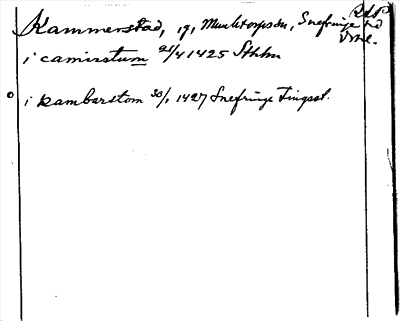 Kammerstad, gd, Munktorps sn, Snefringe hd
Vstml.
i camirstum 21/4 1425 Sthlm
i kambarstom 30/1 1427 Snefringe Tingsst.